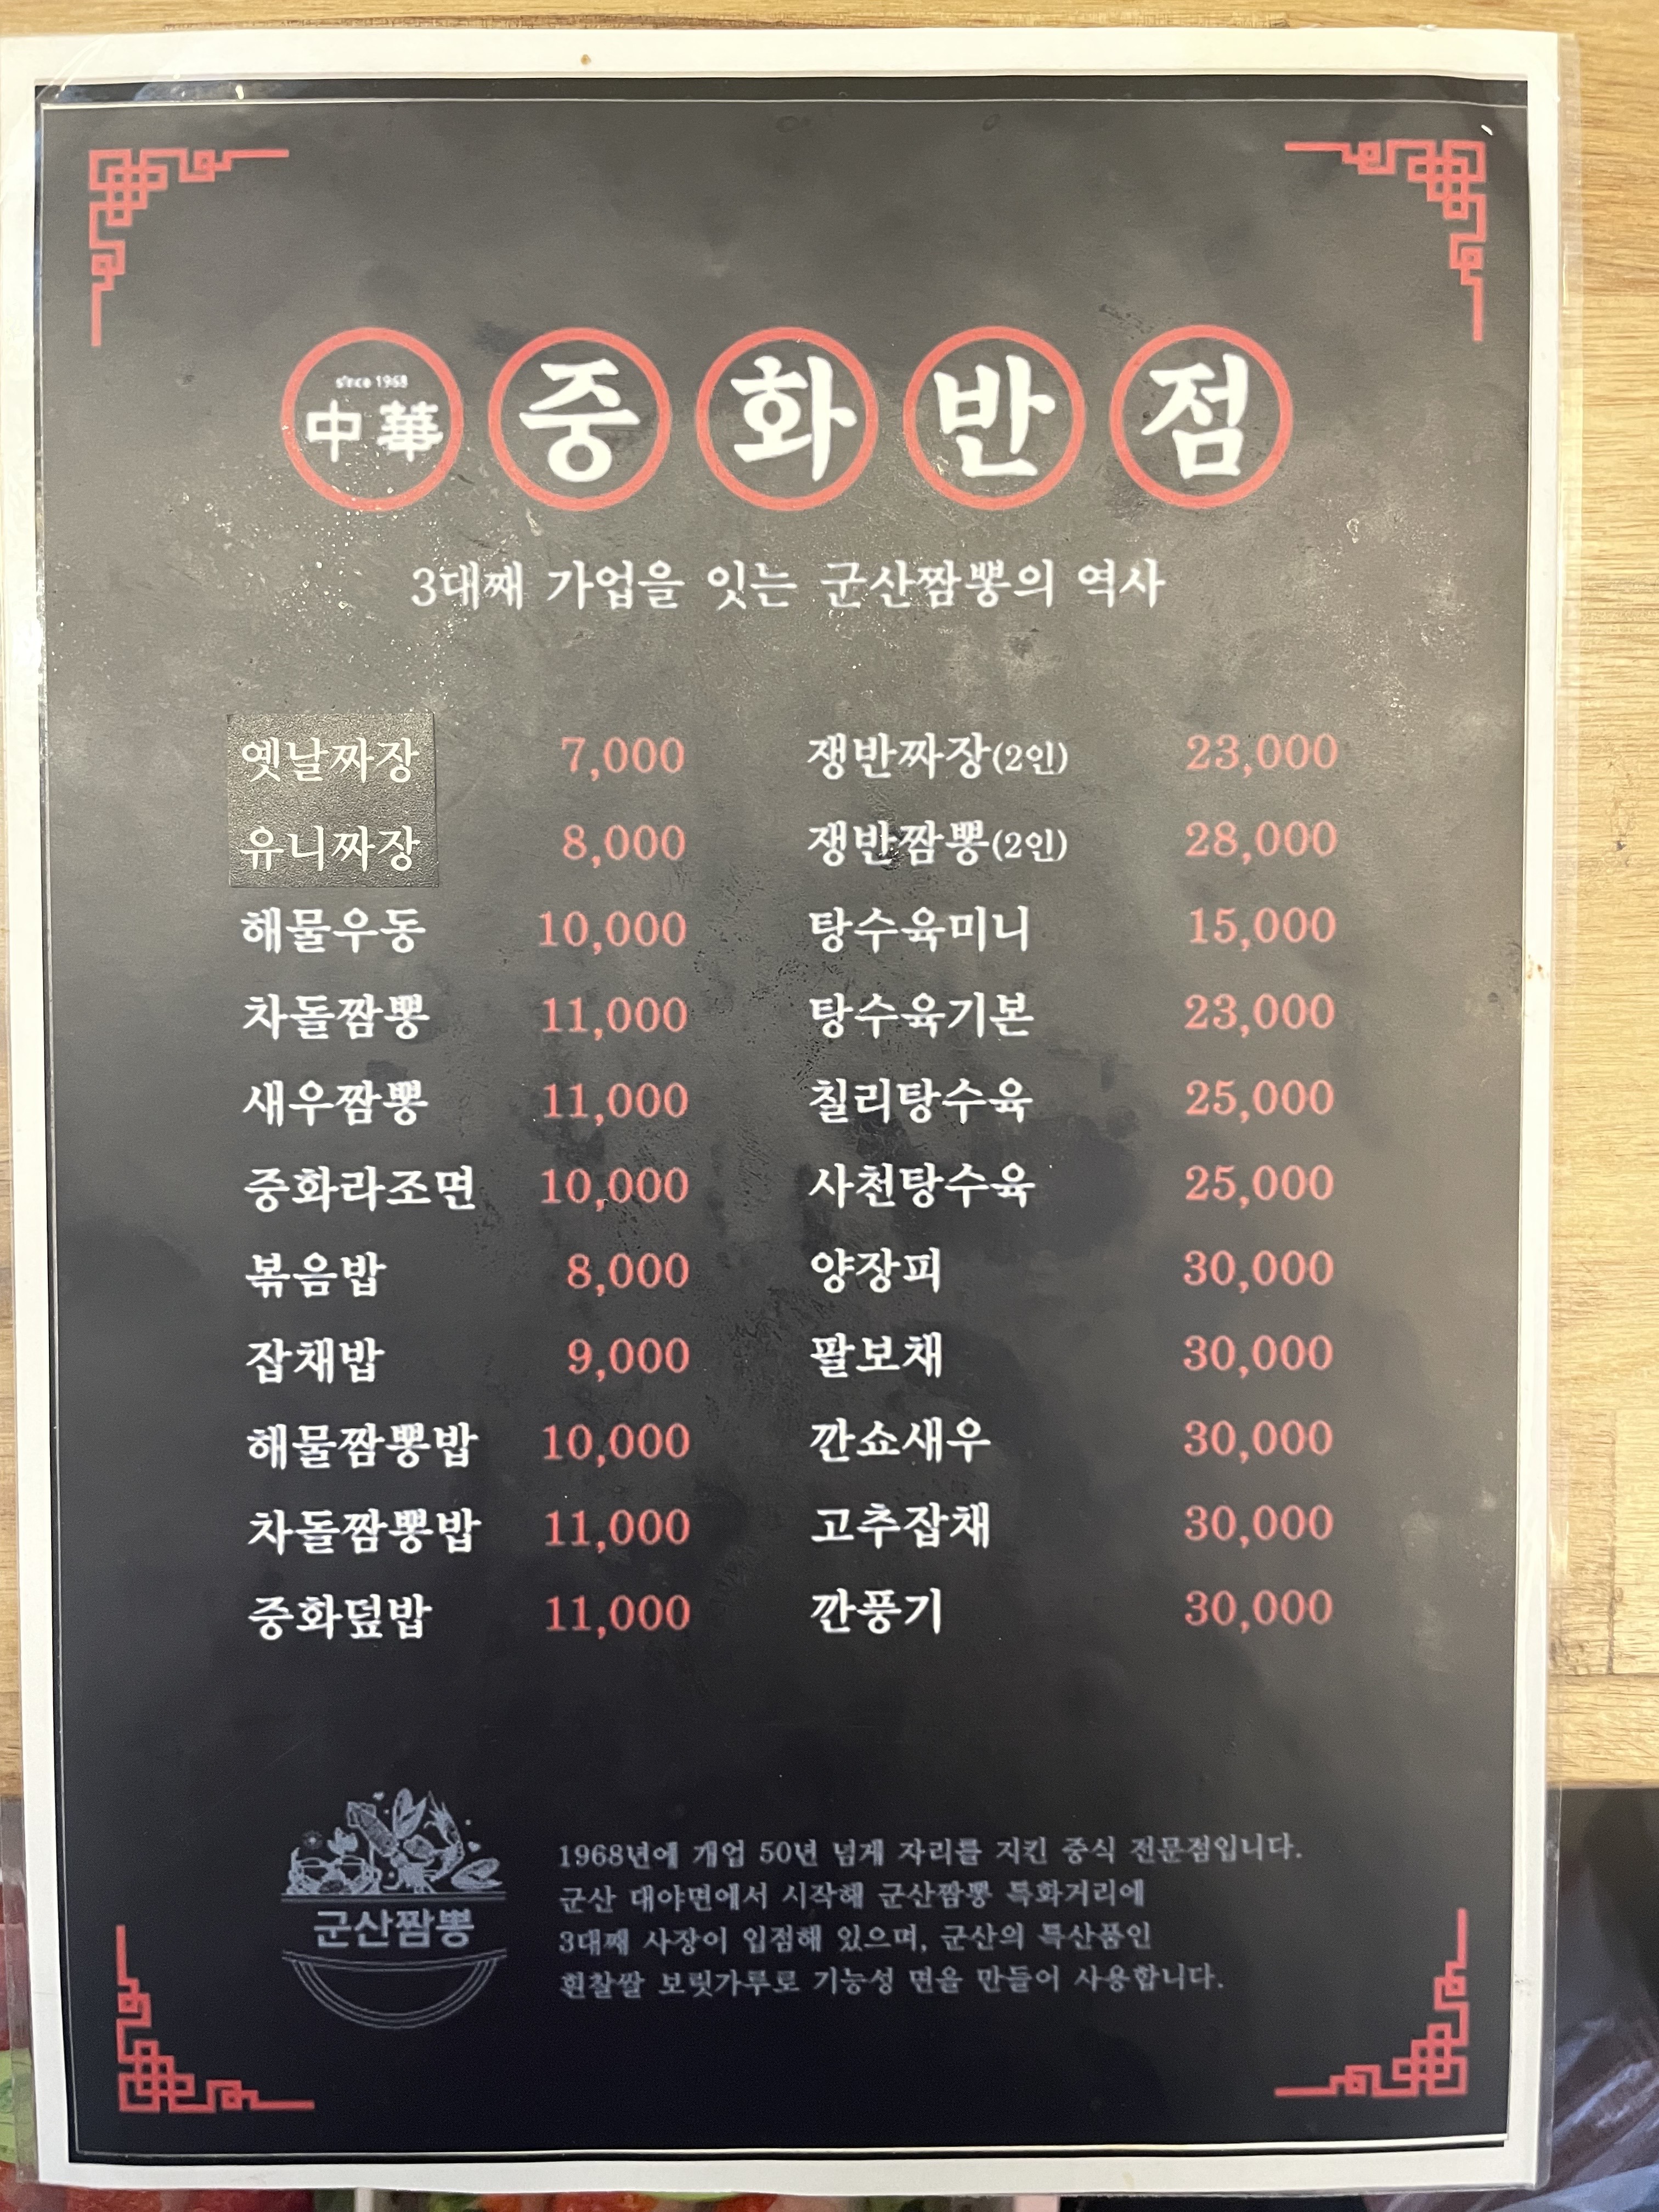 since 1968
中華
중화반점
3대째 가업을 잇는 군산짬뽕의 역사
옛날짜장 7,000
유니짜장 8,000
해물우동 10,000
차돌짬뽕 11,000
새우짬뽕 11,000
중화라조면 10,000
볶음밥 8,000
잡채밥 9,000
해물짬뽕밥 10,000
차돌짬뽕밥 11,000
중화덮밥 11,000
쟁반짜장(2인) 23,000
쟁반짬뽕(2인) 28,000
탕수육미니 15,000
탕수육기본 23,000
칠리탕수육 25,000
사천탕수육 25,000
양장피 30,000
팔보채 30,000
깐쇼새우 30,000
고추잡채 30,000
깐풍기 30,000
군산짬뽕
1968년에 개업 50년 넘게 자리를 지킨 중식 전문점입니다.
군산 대야면에서 시작해 군산짬뽕 특화거리에
3대째 사장이 입점해 있으며, 군산의 특산품인
흰찰쌀 보릿가루로 기능성 면을 만들어 사용합니다.